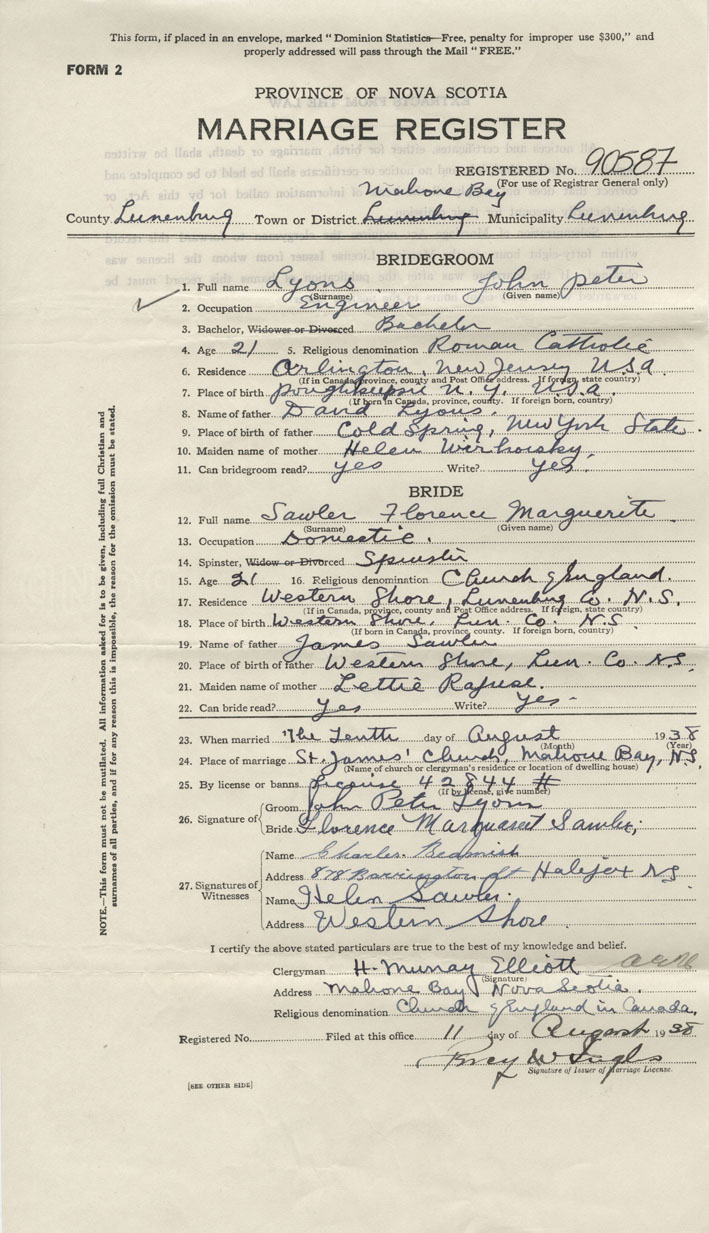 This form, if placed in an envelope, marked "Dominion Statistics—Free, penalty for improper use $300," and
properly addressed will pass through the Mail "FREE."
FORM 2
PROVINCE OF NOVA SCOTIA
MARRIAGE REGISTER
REGISTERED No. 90587
(For use of Registrar General only)
Mahone Bay
County Lunenburg Town or District Lunenburg Municipality Lunenburg
BRIDEGROOM
1. Full name Lyons John Peter
(Surname) (Given name)
2. Occupation Engineer
3. Bachelor, Widower or Divorced Bachelor
4. Age 21 5. Religious denomination Roman Catholic
6. Residence Arlington, New Jersey USA
(If in Canada, province, county and Post Office address. If foreign, state country)
7. Place of birth Poughkeepsie N.Y. U.S.A.
(If born in Canada, province, county. If foreign born, country)
8. Name of father David Lyons.
9. Place of birth of father Cold Spring, New York State.
10. Maiden name of mother Helen
11. Can bridegroom read? yes Write? yes.
BRIDE
12. Full name Sawler Florence Marguerite
(Surname) (Given name)
13. Occupation Domestic.
14. Spinster, Widow or Divorced Spinster
15. Age 21 16. Religious denomination Church of England.
17. Residence Western Shore, Lunenburg Co. N.S.
(If in Canada, province, county and Post Office address. If foreign, state country)
18. Place of birth Western Shore, Lun. Co. N.S
(If born in Canada, province, county. If foreign born, country)
19. Name of father James Sawler
20. Place of birth of father Western Shore, Lun. Co N.S.
21. Maiden name of mother Lettie Rafuse.
22. Can bride read? yes Write? yes
23. When married The Tenth day of August 1938
(Month) (Year)
24. Place of marriage St. James' Church, Mahone Bay, N.S.
(Name of church or clergyman's residence or location of dwelling house)
25. By license or banns License 42844 #
(If by license, give number)
26. Signature of Groom John Peter Lyons
Bride Florence Sawler,
27. Signatures of Witnesses
Name Charles Beamish
Address 878 Barrington St Halifax NS
Name Helen Sawler.
Address Western Shore
I certify the above stated particulars are true to the best of my knowledge and belief.
Clergyman H. Murray Elliott
(Signature)
Address Mahone Bay Nova Scotia.
Religious denomination Church of England in Canada.
Registered No. Filed at this office 11 day of August 1938
Signature of Issuer of Marriage License.
[SEE OTHER SIDE]
NOTE.—This form must not be mutilated. All information asked for is to be given, including full Christian and
surnames of all parties, and if for any reason this is impossible, the reason for the omission must be stated.